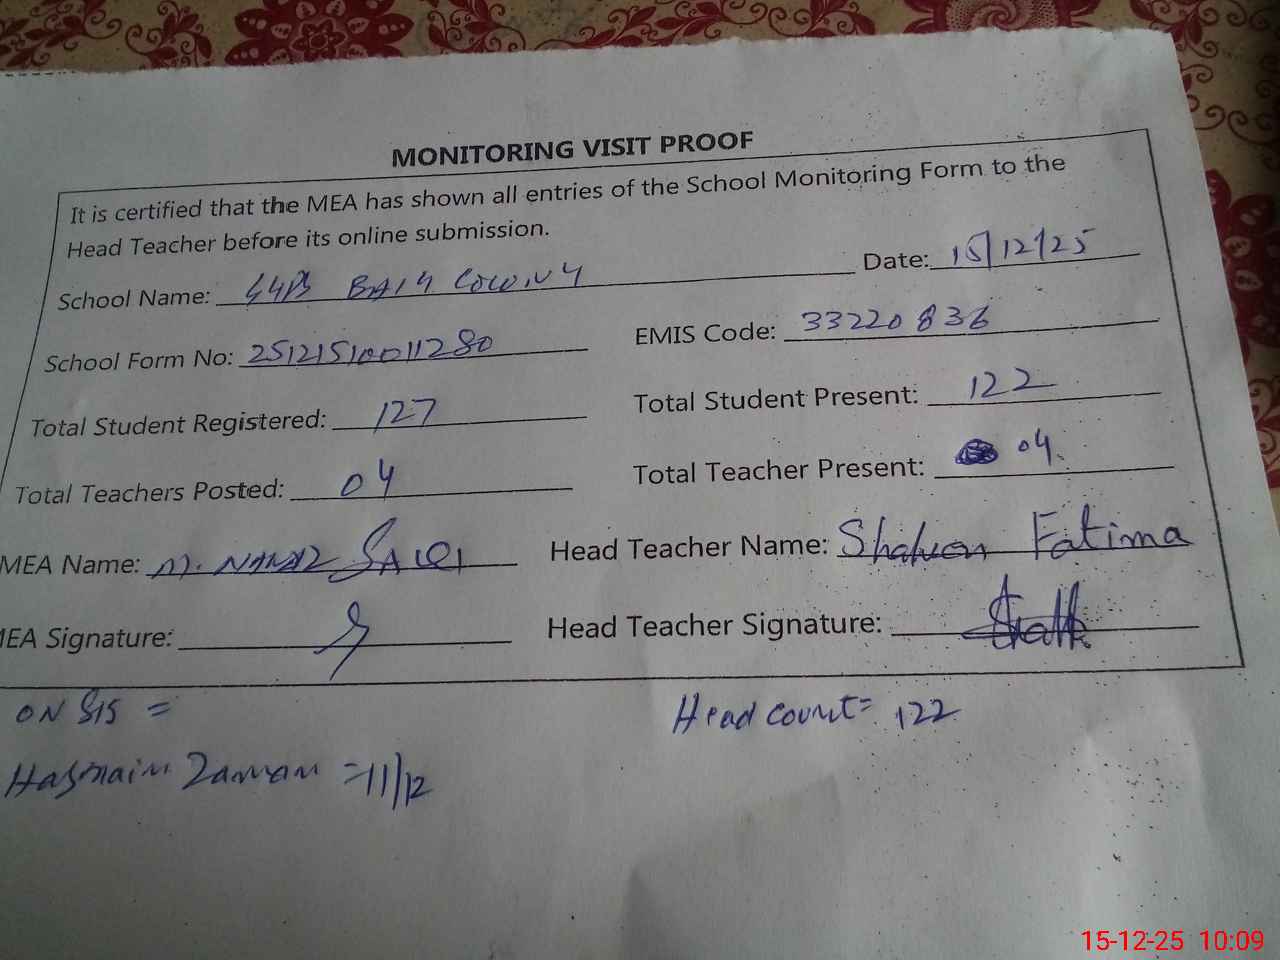 MONITORING VISIT PROOF
It is certified that the MEA has shown all entries of the School Monitoring Form to the
Head Teacher before its online submission.
School Name: BAIG COLONY Date: 15/12/25
School Form No: 25121510011280 EMIS Code: 33220836
Total Student Registered: 127 Total Student Present: 122
Total Teachers Posted: 04 Total Teacher Present: 04
MEA Name: M. Head Teacher Name: Fatima
MEA Signature: Head Teacher Signature:
ON SIS =
Head count= 122
Hasnain Zaman = 11/12
15-12-25 10:09